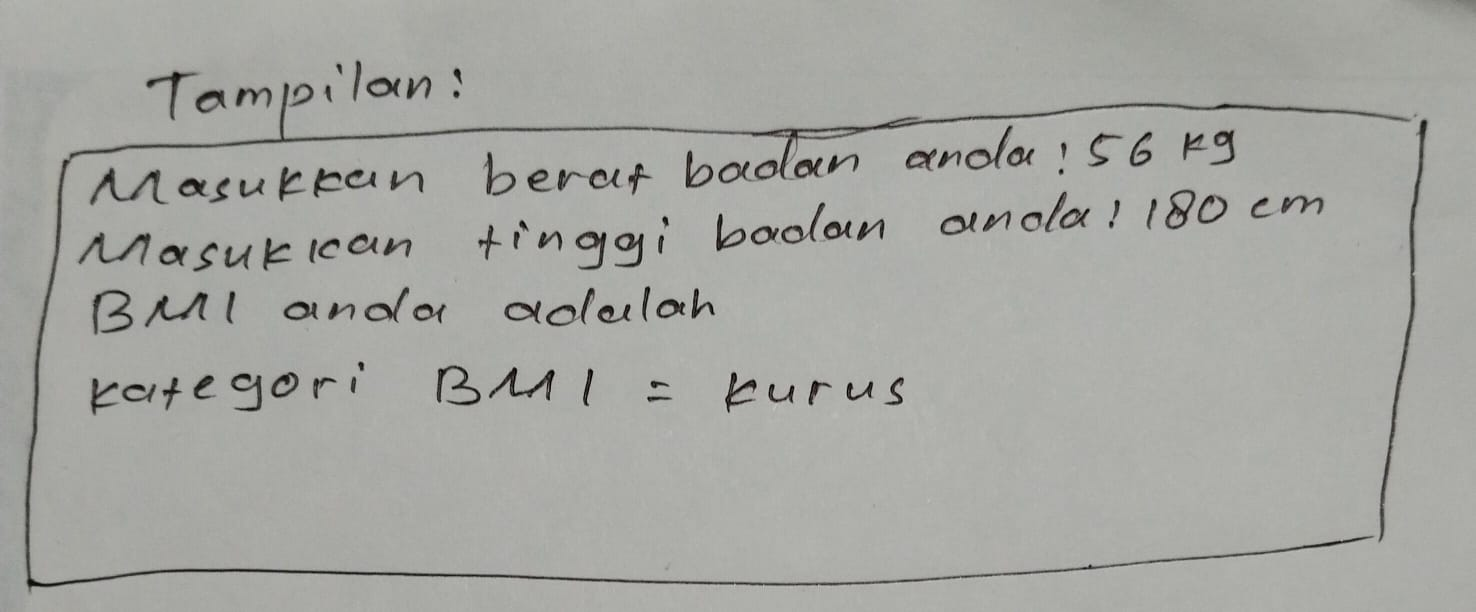 Tampilan:
Masukkan berat badan anda : 56 kg
Masukkan tinggi badan anda : 180 cm
BMI anda adalah
kategori BMI = kurus